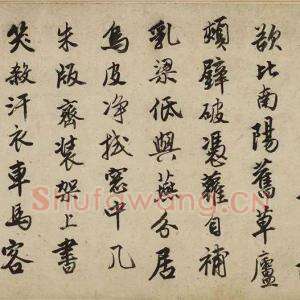 欲比南陽舊草廬
頹壁破憑蘿自補
乳梁低與燕分居
烏皮净拭窓中几
朱版齊裝架上書
笑殺汗衣車馬客
Shufawang.CN